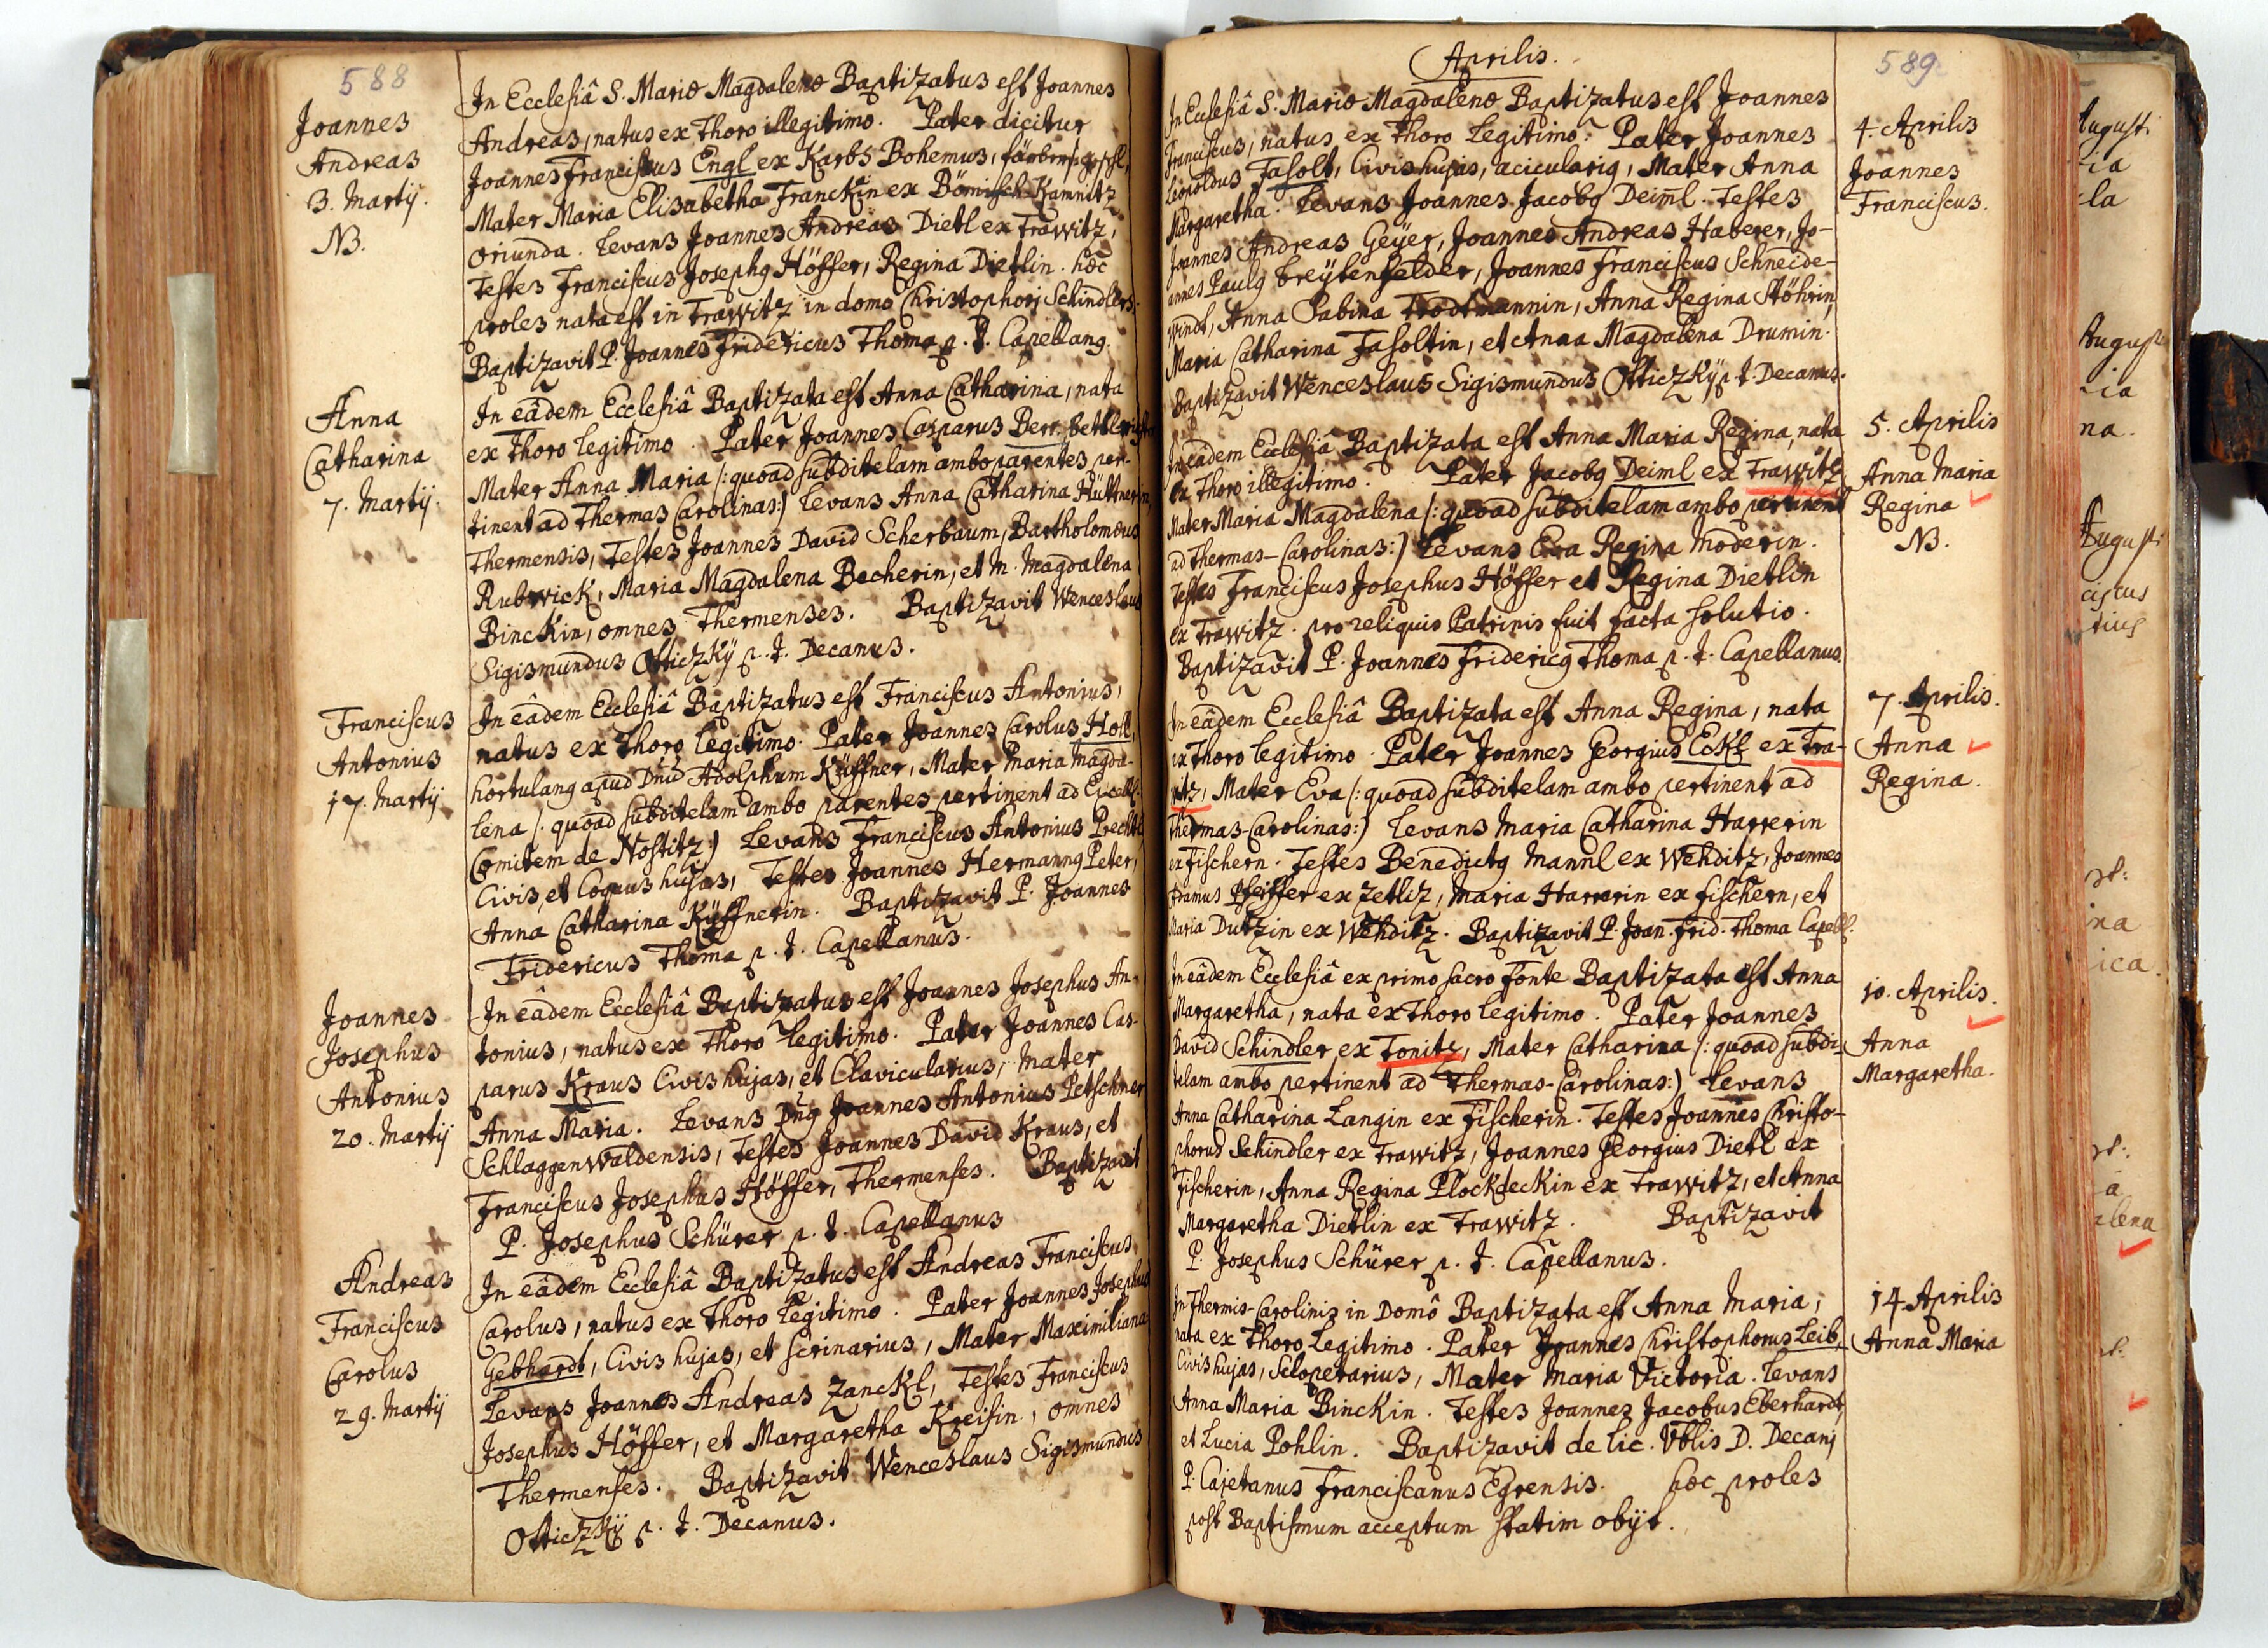 588
Joannes
Andreas
3. Martij.
NB.
In Ecclesiâ S. Mariæ Magdalenæ Baptizatus est Joannes
Andreas, natus ex Thoro illegitimo. Pater dicitur
Joannes Franciscus Engl ex Karbs Bohemus,
Mater Maria Elisabetha Franckin ex Bömisch-Kamnitz
oriunda. Levans Joannes Andreas Dietl ex Trawitz,
Testes Franciscus Josephg Höffer, Regina Dietlin. hæc
proles nata est in Trawitz in domo Christophorj Schindlers.
Baptizavit P. Joannes Fridericus Thoma p. t. Capellang.
Anna
Catharina
7. Martij.
In eâdem Ecclesiâ Baptizata est Anna Catharina, nata
ex Thoro legitimo. Pater Joannes Casparus Berr
Mater Anna Maria /: quoad subditelam ambo parentes per-
tinent ad Thermas Carolinas:) Levans Anna Catharina Hüttnerin,
Thermensis, Testes Joannes David Scherbaum, Bartholomæus
Rubwick, Maria Magdalena Becherin, et M. Magdalena
Binckin, omnes Thermenses. Baptizavit Wenceslaus
Sigismundus Otticzky p. t. Decanus.
Franciscus
Antonius
17. Martij
In eâdem Ecclesiâ Baptizatus est Franciscus Antonius,
natus ex Thoro legitimo. Pater Joannes Carolus Holl,
hortulang apud Dnū Adolphum Küffner, Mater Maria Magda-
lena /: quoad subditelam ambo parentes pertinent ad Excell:
Comitem de Nostitz:) Levans Franciscus Antonius Prechtl
Civis, et Coquus hujas, Testes Joannes Hermanng Peter,
Anna Catharina Küffnerin. Baptizavit P. Joannes
Fridericus Thoma p. t. Capellanus.
Joannes
Josephus
Antonius
20. Martij
In eâdem Ecclesiâ Baptizatus est Joannes Josephus An-
tonius, natus ex Thoro legitimo. Pater Joannes Cas-
parus Kraus Civis hujas, et Clavicularius, Mater
Anna Maria. Levans Dng Joannes Antonius Petschner
Schlaggenwaldensis, Testes Joannes David Kraus, et
Franciscus Josephus Höffer, Thermenses. Baptizavit
P. Josephus Schürer p. t. Capellanus
Andreas
Franciscus
Carolus
29. Martij
In eâdem Ecclesiâ Baptizatus est Andreas Franciscus
Carolus, natus ex Thoro legitimo. Pater Joannes Josephus
Gebhardt, Civis hujas, et scrinarius, Mater Maximiliana
Levans Joannes Andreas Zanckl, Testes Franciscus
Josephus Höffer, et Margaretha Kreisin, omnes
Thermenses. Baptizavit Wenceslaus Sigismundus
Otticzky p. t. Decanus.
589
Aprilis.
In Ecclesiâ S. Mariæ Magdalenæ Baptizatus est Joannes
Franciscus, natus ex Thoro Legitimo. Pater Joannes
Leopoldus Fasolt, Civis hujas, acicularig, Mater Anna
Margaretha. Levans Joannes Jacobg Deiml. Testes
Joannes Andreas Geÿer, Joannes Andreas Haberer, Jo-
annes Paulg Breÿtenfelder, Joannes Franciscus Schneide-
windt, Anna Sabina Trodtmannin, Anna Regina Stöhrin,
Maria Catharina Fasoltin, et Anna Magdalena Drumin.
Baptizavit Wenceslaus Sigismundus Otticzkÿ p. t. Decanus.
4. Aprilis
Joannes
Franciscus.
In eâdem Ecclesiâ Baptizata est Anna Maria Regina, nata
ex Thoro illegitimo. Pater Jacobg Deiml ex Trawitz
Mater Maria Magdalena /: quoad subditelam ambo pertinent
ad Thermas-Carolinas:) Levans Eva Regina Moderin.
Testes Franciscus Josephus Höffer et Regina Dietlin
ex Trawitz. pro reliquis Patrinis fuit facta solutio.
Baptizavit P. Joannes Fridericg Thoma p. t. Capellanus.
5. Aprilis
Anna Maria
Regina
NB.
In eâdem Ecclesiâ Baptizata est Anna Regina, nata
ex Thoro legitimo. Pater Joannes Georgius Eckl ex Tra-
witz, Mater Eva /: quoad subditelam ambo pertinent ad
Thermas-Carolinas:) Levans Maria Catharina Harrerin
ex Fischern. Testes Benedictg Mannl ex Wehditz, Joannes
Pfeiffer ex Zetliz, Maria Harrerin ex Fischern, et
Maria Dutzin ex Wehditz. Baptizavit P. Joan. Frid. Thoma Capell.
7. Aprilis.
Anna
Regina.
In eâdem Ecclesiâ ex primo sacro Fonte Baptizata est Anna
Margaretha, nata ex Thoro legitimo. Pater Joannes
David Schindler ex Tonitz, Mater Catharina /: quoad subdi-
telam ambo pertinent ad Thermas-Carolinas:) Levans
Anna Catharina Langin ex Fischerin. Testes Joannes Christo-
phorus Schindler ex Trawitz, Joannes Georgius Dietl ex
Fischerin, Anna Regina Plockdeckin ex Trawitz, et Anna
Margaretha Dietlin ex Trawitz. Baptizavit
P. Josephus Schürer p. t. Capellanus.
10. Aprilis.
Anna
Margaretha.
In Thermis-Carolinis in Domô Baptizata est Anna Maria,
nata ex Thoro Legitimo. Pater Joannes Christophorus Leib,
Civis hujas, Sclopetarius, Mater Maria Victoria. Levans
Anna Maria Binckin. Testes Joannes Jacobus Eberhardt,
et Lucia Pohlin. Baptizavit de lic. Vblis D. Decanj
P. Cajetanus Franciscanus Egrensis. hæc proles
post Baptismum acceptum statim obijt.
14. Aprilis
Anna Maria